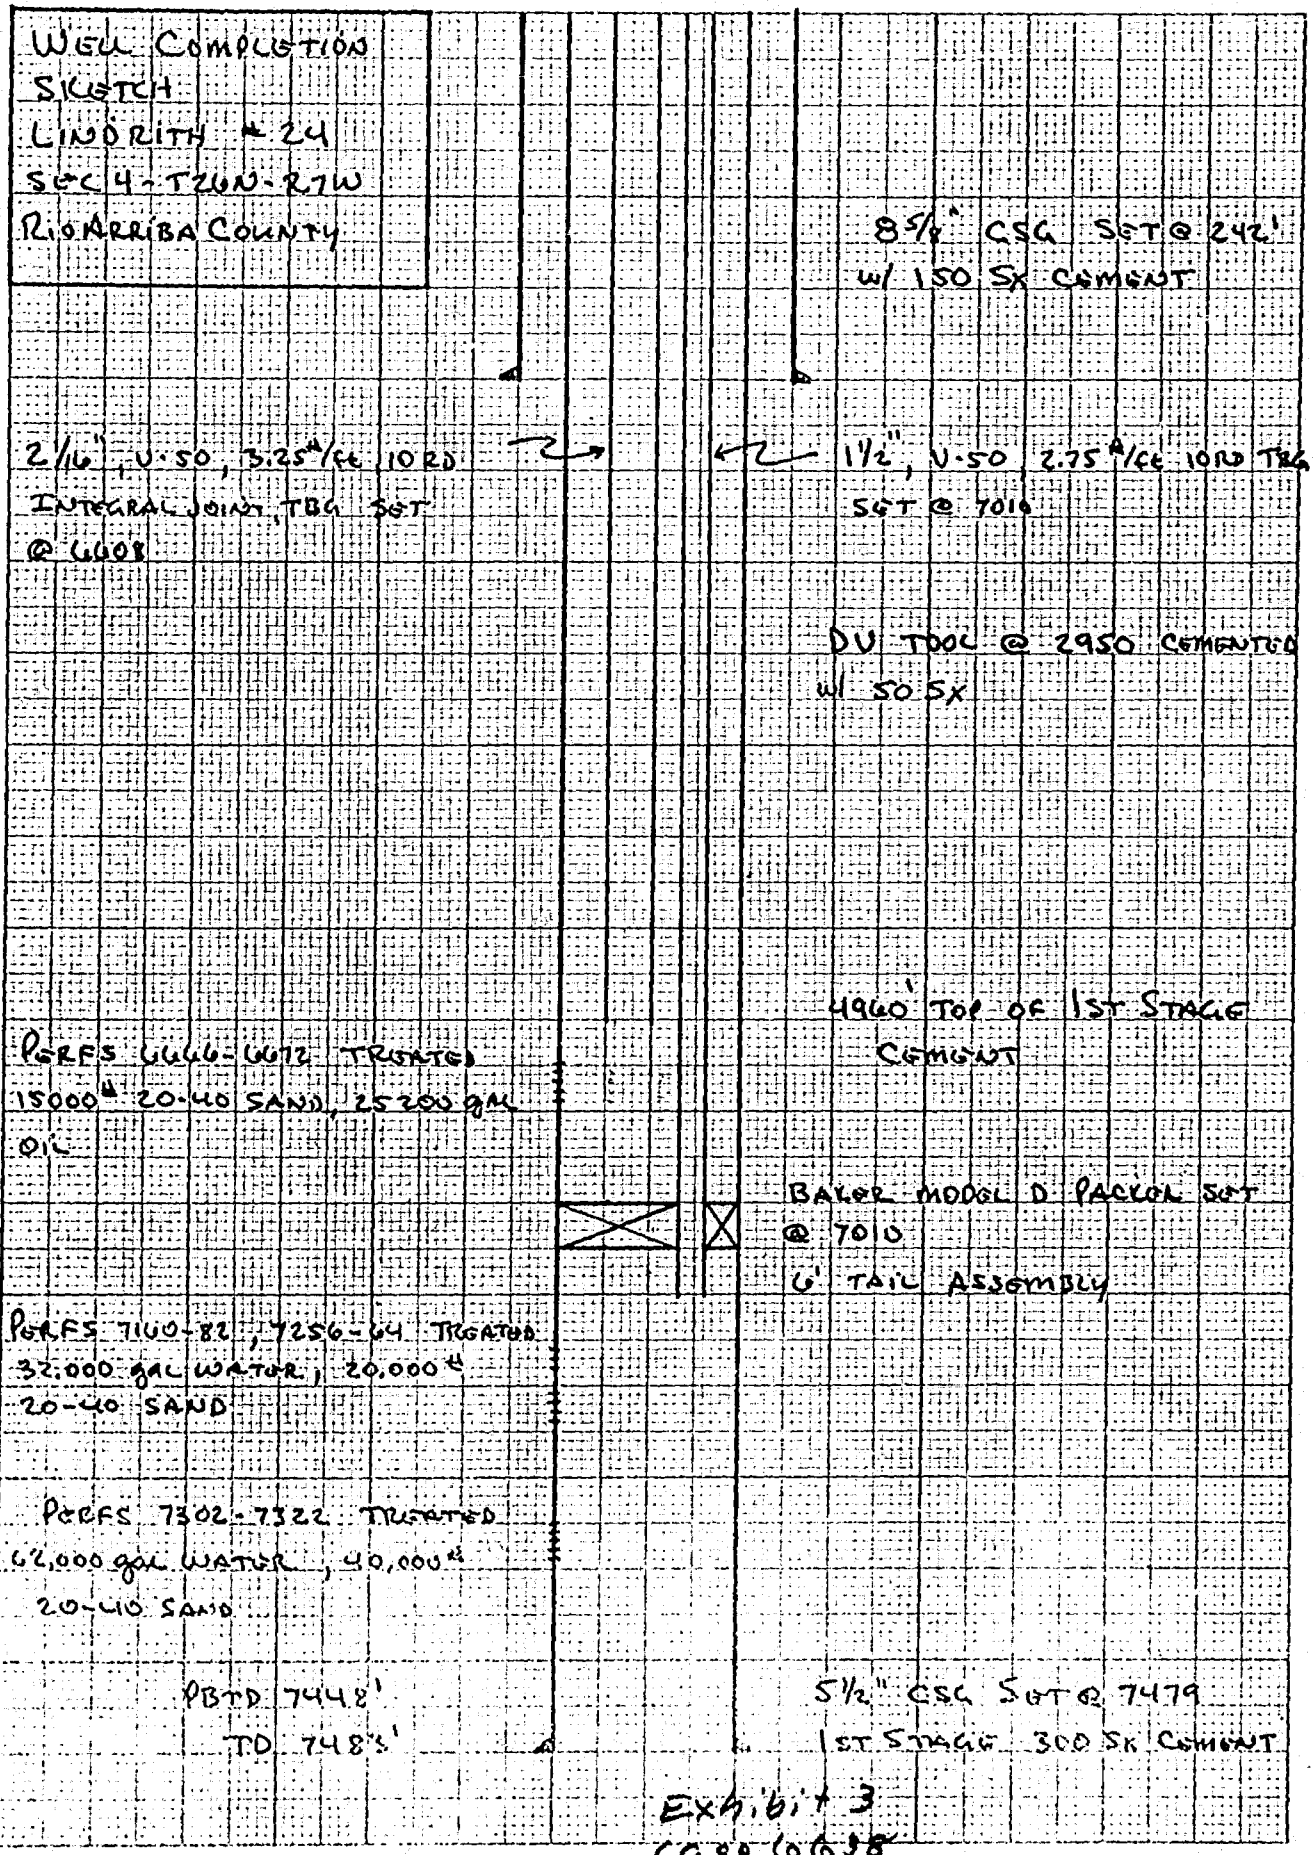 WELL COMPLETION
SKETCH
LINDRITH # 24
SEC 4-T26N-R7W
RIO ARRIBA COUNTY
8 5/8" CSG SET @ 242'
w/ 150 SX CEMENT
2 1/16", V-50, 3.25#/ft 10 RD
INTEGRAL JOINT, TBG SET
@ 6608
1 1/2", V-50, 2.75#/ft 10 RD TBG
SET @ 7010
DV TOOL @ 2950 CEMENTED
w/ 50 SX
4960' TOP OF 1ST STAGE
CEMENT
PERFS 6646-6672 TREATED
15000# 20-40 SAND, 25200 gAL
OIL
BAKER MODEL D PACKER SET
@ 7010
6' TAIL ASSEMBLY
PERFS 7160-82, 7256-64 TREATED
32,000 gAL WATER, 20,000#
20-40 SAND
PERFS 7302-7322 TREATED
62,000 gAL WATER, 40,000#
20-40 SAND
PBTD 7448'
TD 7483'
5 1/2" CSG SET @ 7479
1ST STAGE 300 SX CEMENT
Exhibit 3